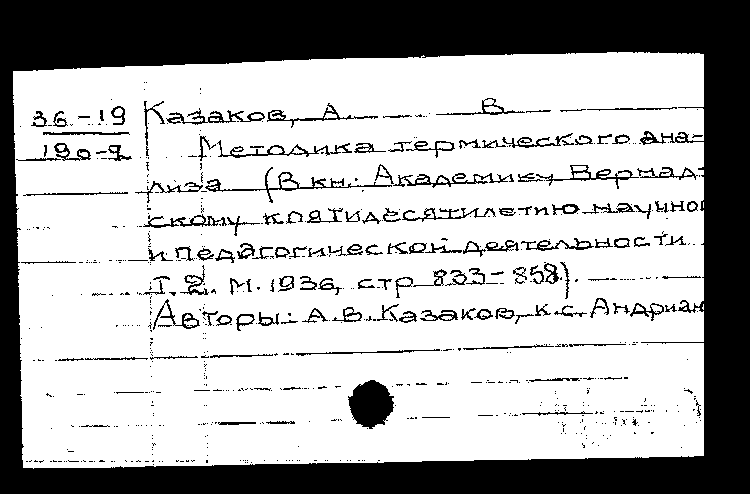 36-19 Казаков, А. В.
190-2 Методика термического ана-
лиза (В кн.: Академику Вернад-
скому к пятидесятилетию научной
и педагогической деятельности
Т. 2. М. 1936, стр 833-858).
Авторы: А.В. Казаков, К.С. Андриан